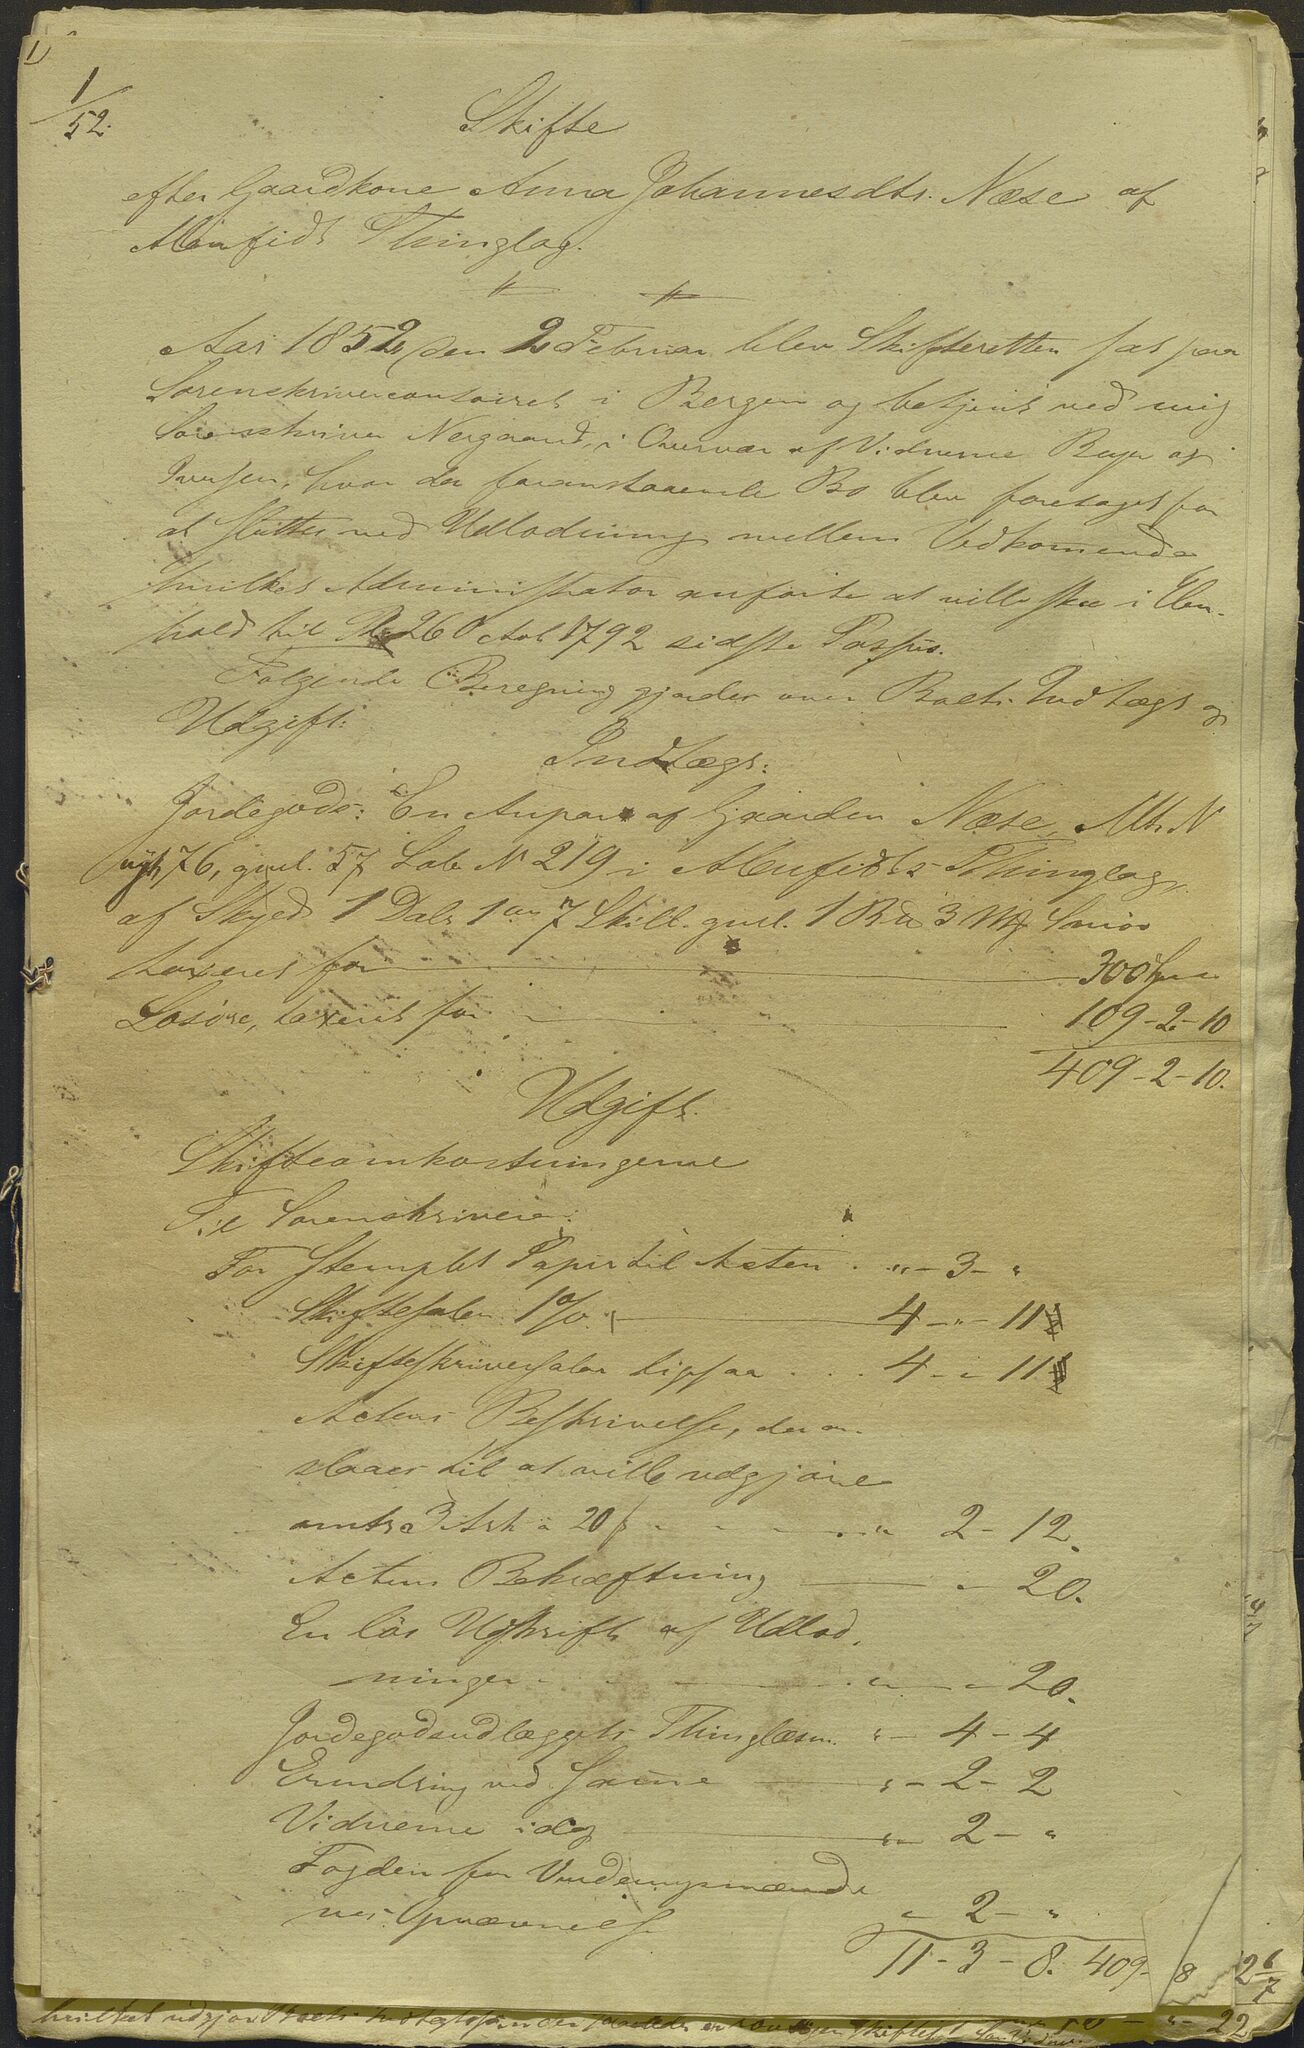 1)
1/52.
Skifte
efter Gaardkone Anna Johannesdtr. Næse af
Alenfidt Thinglag.
Aar 1852 den 2 Februar blev Skifteretten sat paa
Sorenskrivercontoiret i Bergen og betjent ved mig
Sorenskriver Nergaard, i Overvær af Vidnerne Beyer og
Iversen, hvor da foranstaaende Bo blev foretaget for
at sluttes ved Udlodning mellem Vedkommende
hvilket Administrator anførte at ville skee i Hen-
hold til Pl. 26 Octob 1792 sidste Passus.
Følgende Beregning gjordes over Boets Indtægt og
Udgift:
Indtægt:
Jordegods: En Anpart af Gaarden Næse, Mtr. N
nyt 76, gml. 57 Løbe N 219 i Alenfidts Thinglag
af Skyld 1 Dalr 1 ort 7 Skill. gml. 1 Bd 3 Mk Smör
taxeret for 300
Løsöre, taxeret for 109 - 2 - 10
409 - 2 - 10.
Udgift.
Skifteomkostningerne
Til Sorenskriveren:
For stemplet Papir til Acten . " - 3 - "
Skiftesalær 1 % 4 - " - 11
Skifteskriversalær ligesaa . . . 4 - " - 11
Actens Beskrivelse, der an-
slaaes til at ville udgjöre
3 Ark a 20 ß " 2 - 12.
Actens Bekræftning " - 20.
En lös Udskrift af Udlod-
ningen " - 20.
Jordegodsudlæggets Thinglæsn. " - 4 - 4
Erindring ved Samme " - 2 - 2
Vidnerne idag " - 2 - "
Fogden for Vurderingsmænde
nes Opnævnelse " 2 - "
11 - 3 - 8. 409 - 8
2 6/7
22